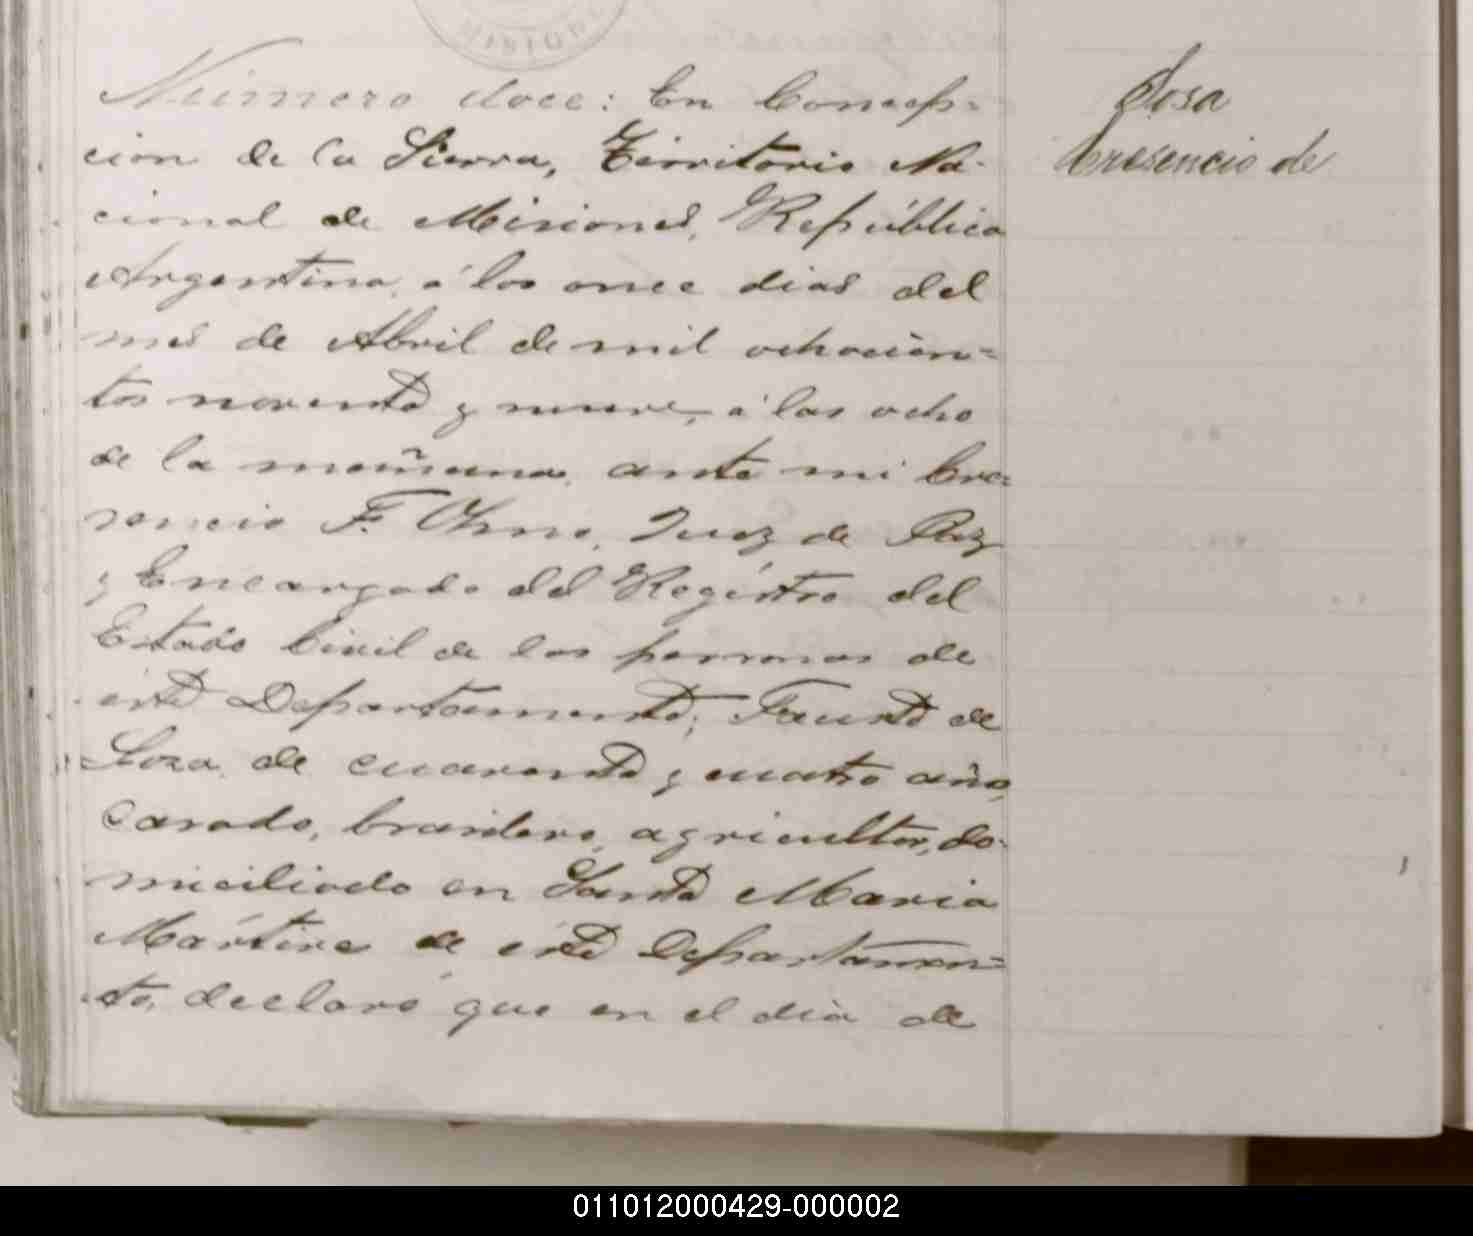 Número doce: En Concep-
cion de la Sierra, Territorio Na-
cional de Misiones, República
Argentina, á los once dias del
mes de Abril de mil ochocien-
tos noventa y nueve, á las ocho
de la mañana, ante mi Cre-
sencio F. Juez de Paz
y Encargado del Registro del
Estado Civil de las personas de
este Departamento, Fausto de
Soza, de cuarenta y cuatro años,
casado, brasilero, agricultor, do-
miciliado en Santa Maria
Mártires de este Departamen-
to, declaró que en el dia de
Sosa
Cresencio de
011012000429-000002